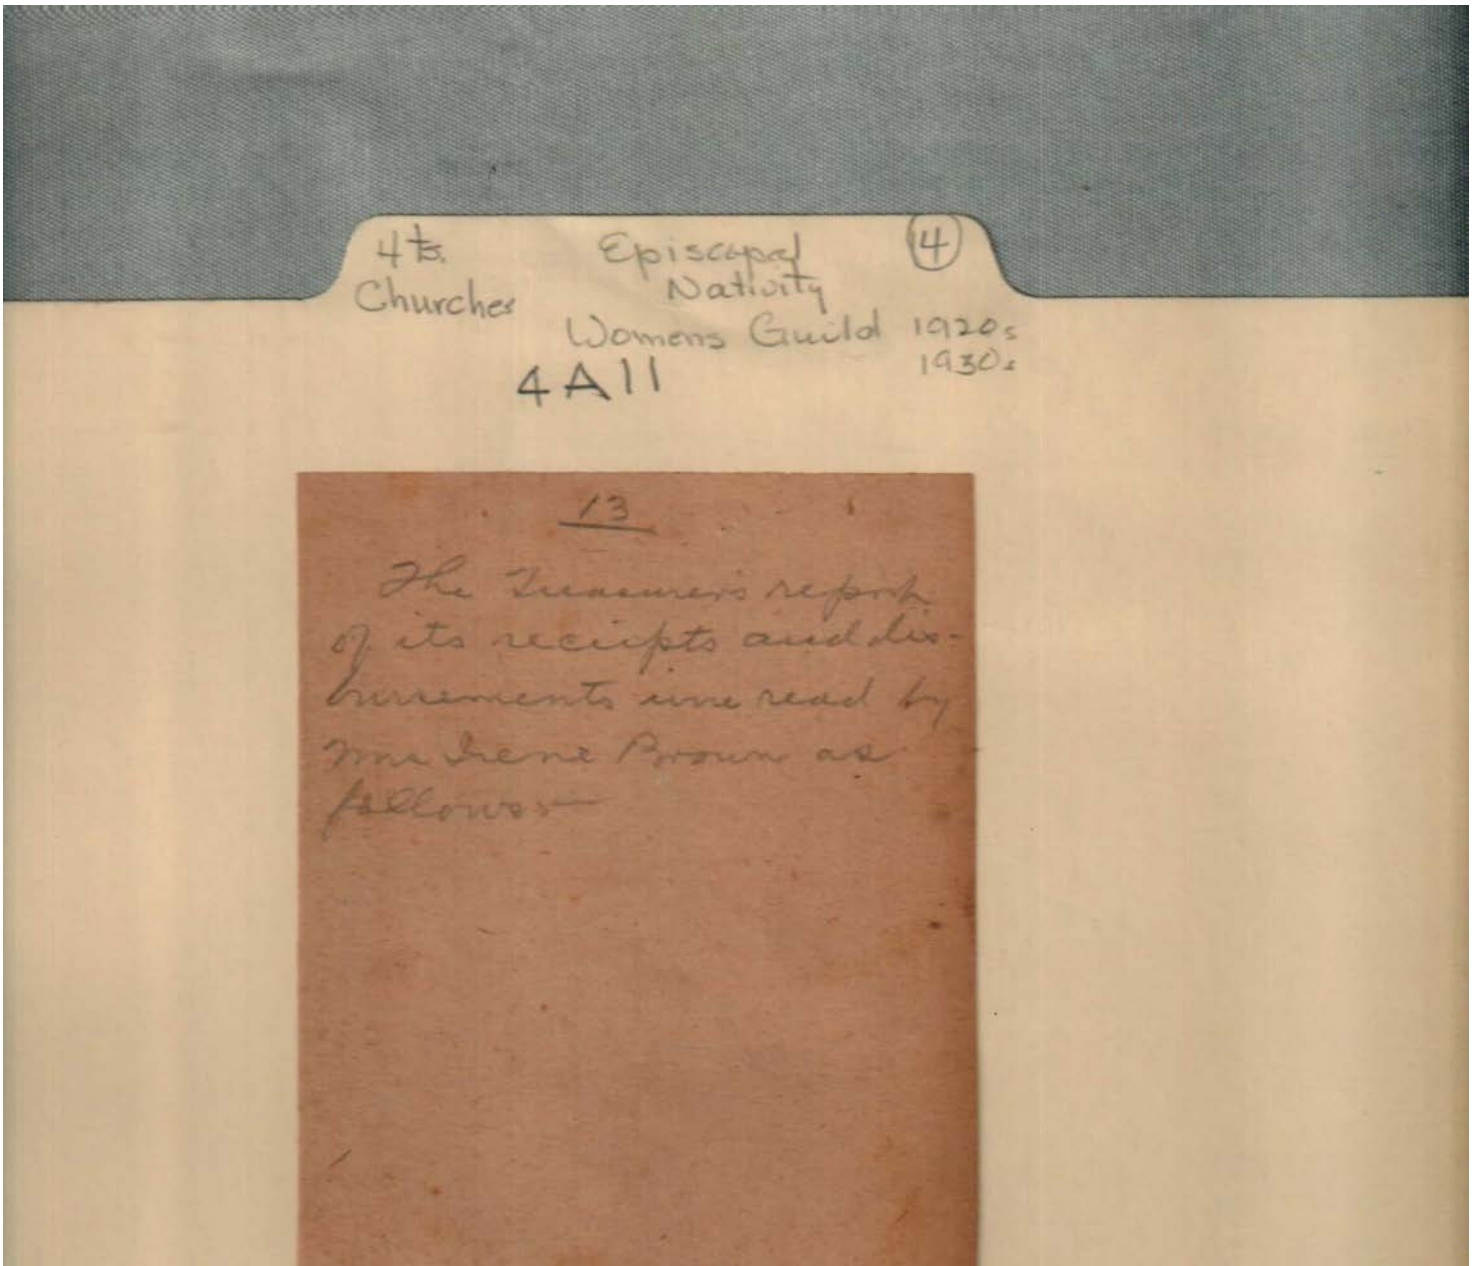 4ts. Episcopal 14
Churches Nativity
Womens Guild 1920s
1930s
4A11
13
The Treasurers report
of its reciepts and dis-
bursements were read by
Mrs Irene Brown as
follows:—